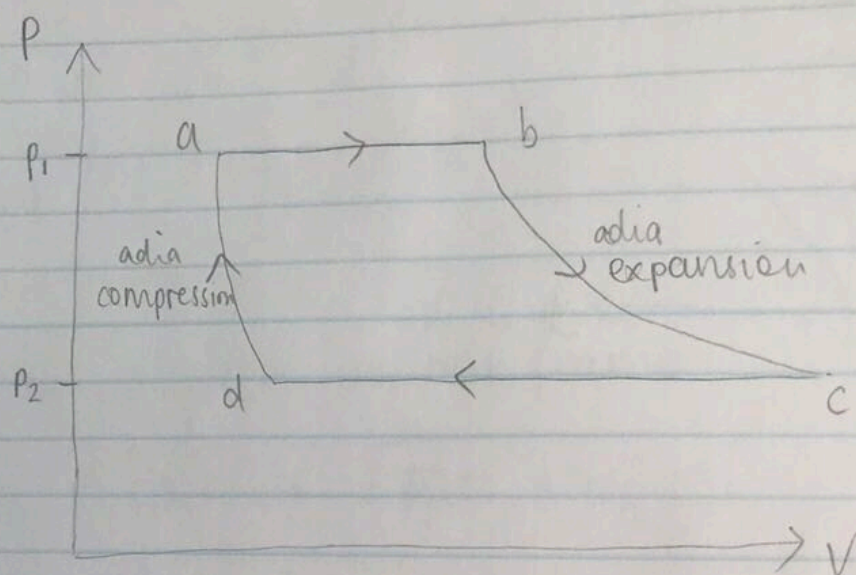 P
a
b
P₁
adia
compression
adia
expansion
P₂
d
c
V